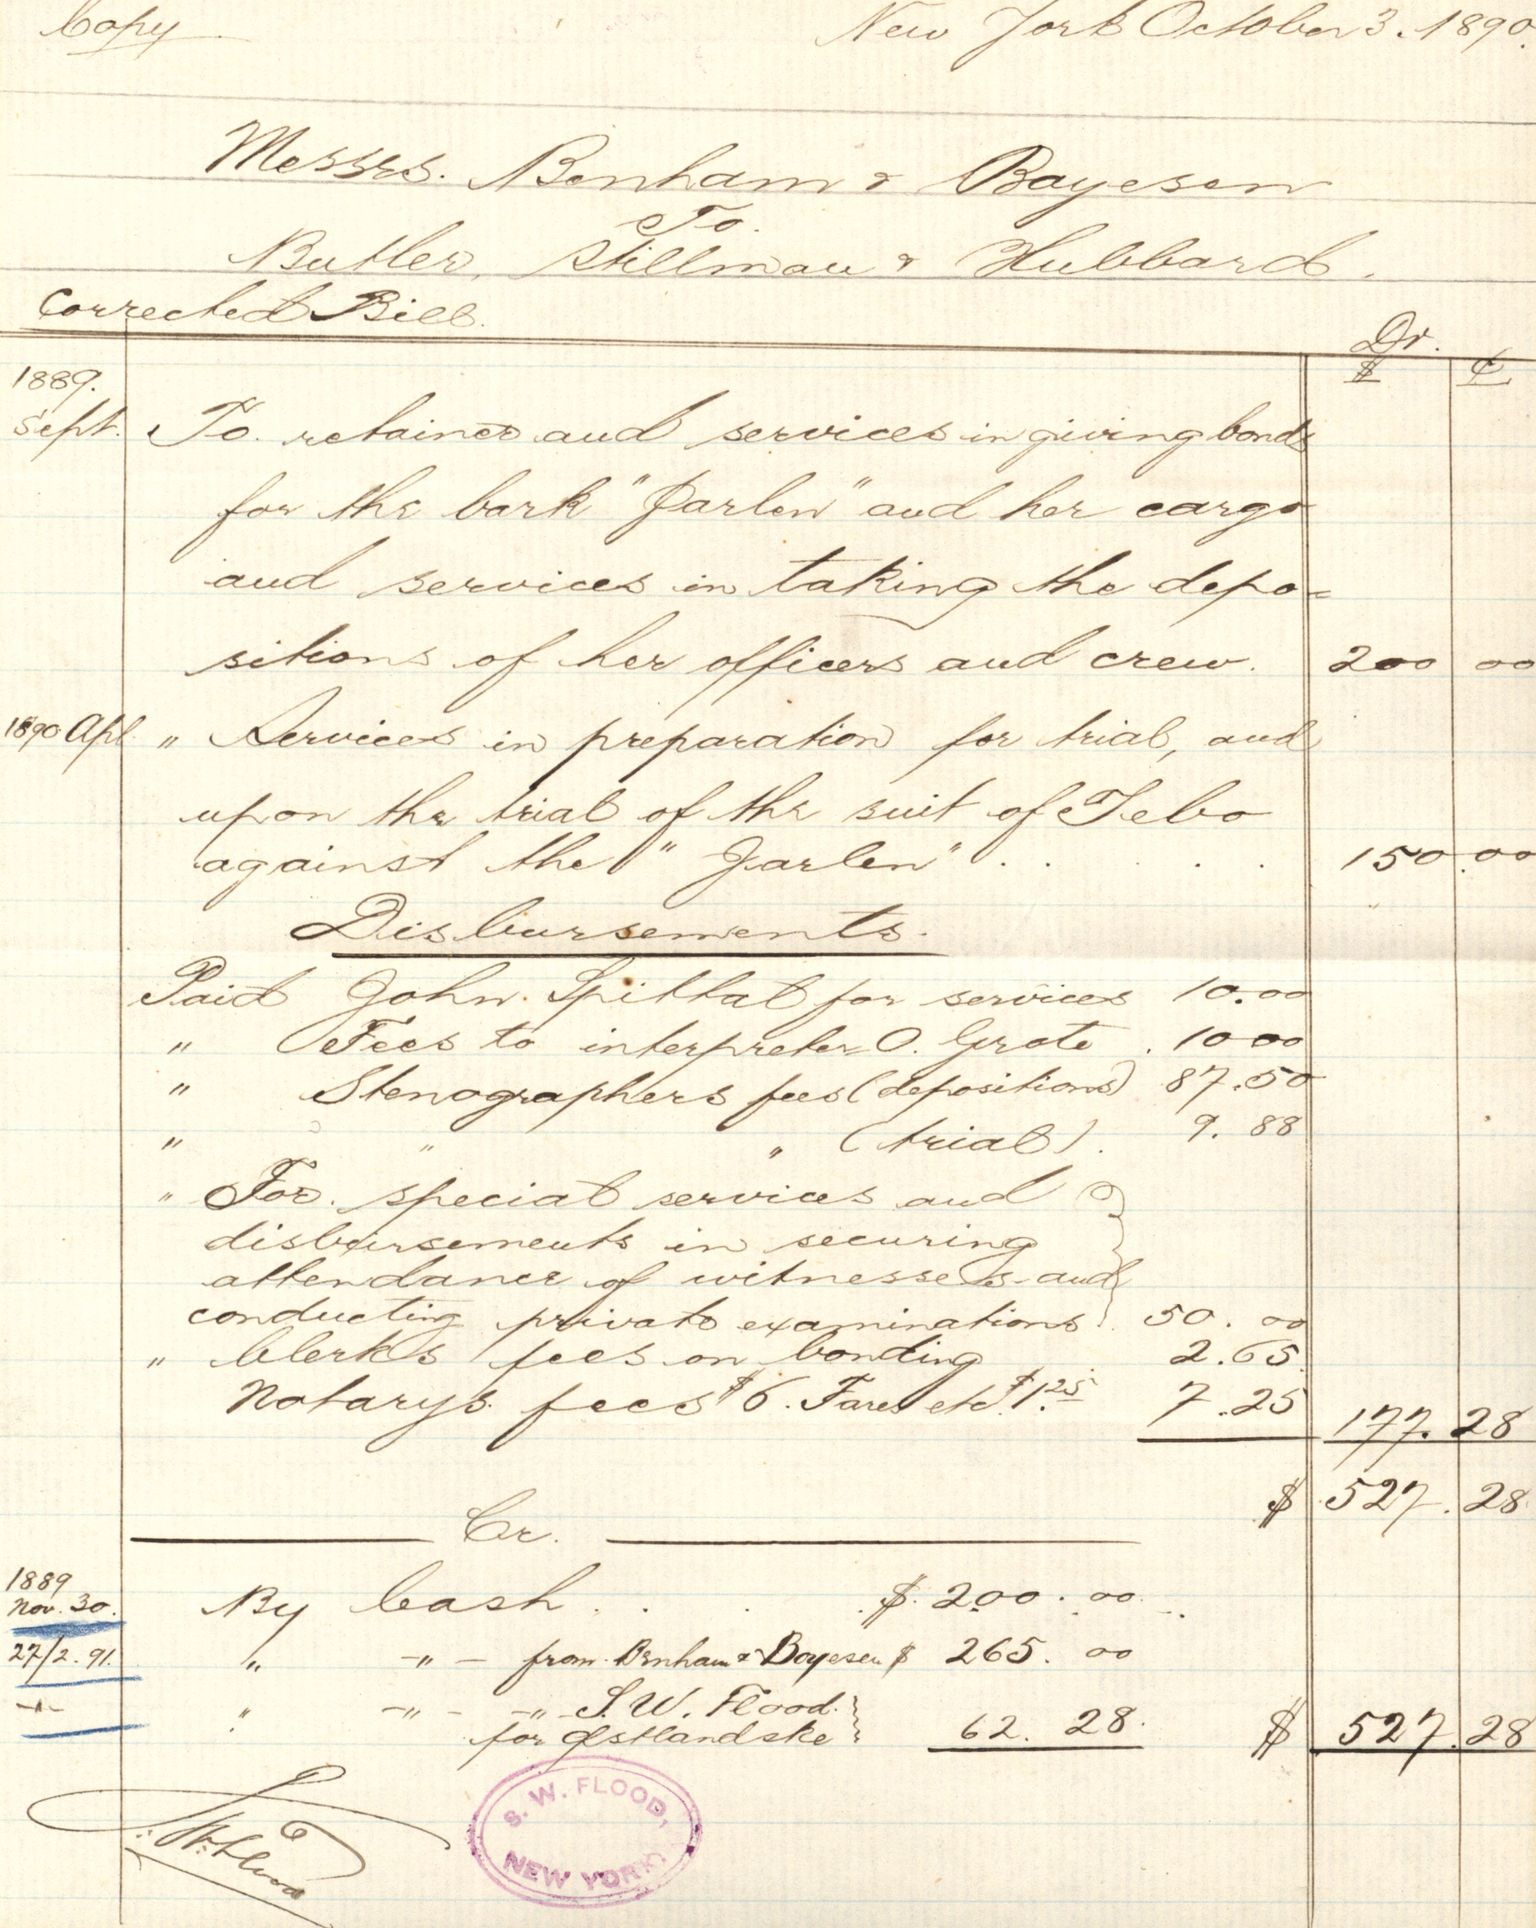 Copy New York October 3. 1890.
Messrs. Benham & Boyesen
To.
Butler, Stillman & Hubbard.
Corrected Bill.
Dr.
$ ¢
1889.
Sept. To. retainer and services in giving bonds
for the bark "Jarlen" and her cargo
and services in taking the depo-
sitions of her officers and crew. 200 00
1890 Apl. " Services in preparation for trial, and
upon the trial of the suit of Tebo
against the "Jarlen" . . . . . 150.00
Disbursements.
Paid John Spittal for services 10.00
" Fees to interpreter O. Grote. 10 00
" Stenographers fees (depositions) 87.50
" " " (trial). 9.88
" For special services and
disbursements in securing
attendance of witnesses and
conducting private examinations 50.00
" Clerks fees on bonding 2.65
Notarys fees $6. Fares etc. $1.25 7.25 177.28
$ 527.28
Cr.
1889
Nov. 30. By Cash . . . $. 200.00
27/2. 91. " -"- from Benham & Boyesen $ 265.00
-"- " -"- -"- S. W. Flood.
for Østlandske 62.28. $ 527.28
S. W. Flood
S. W. FLOOD,
NEW YORK